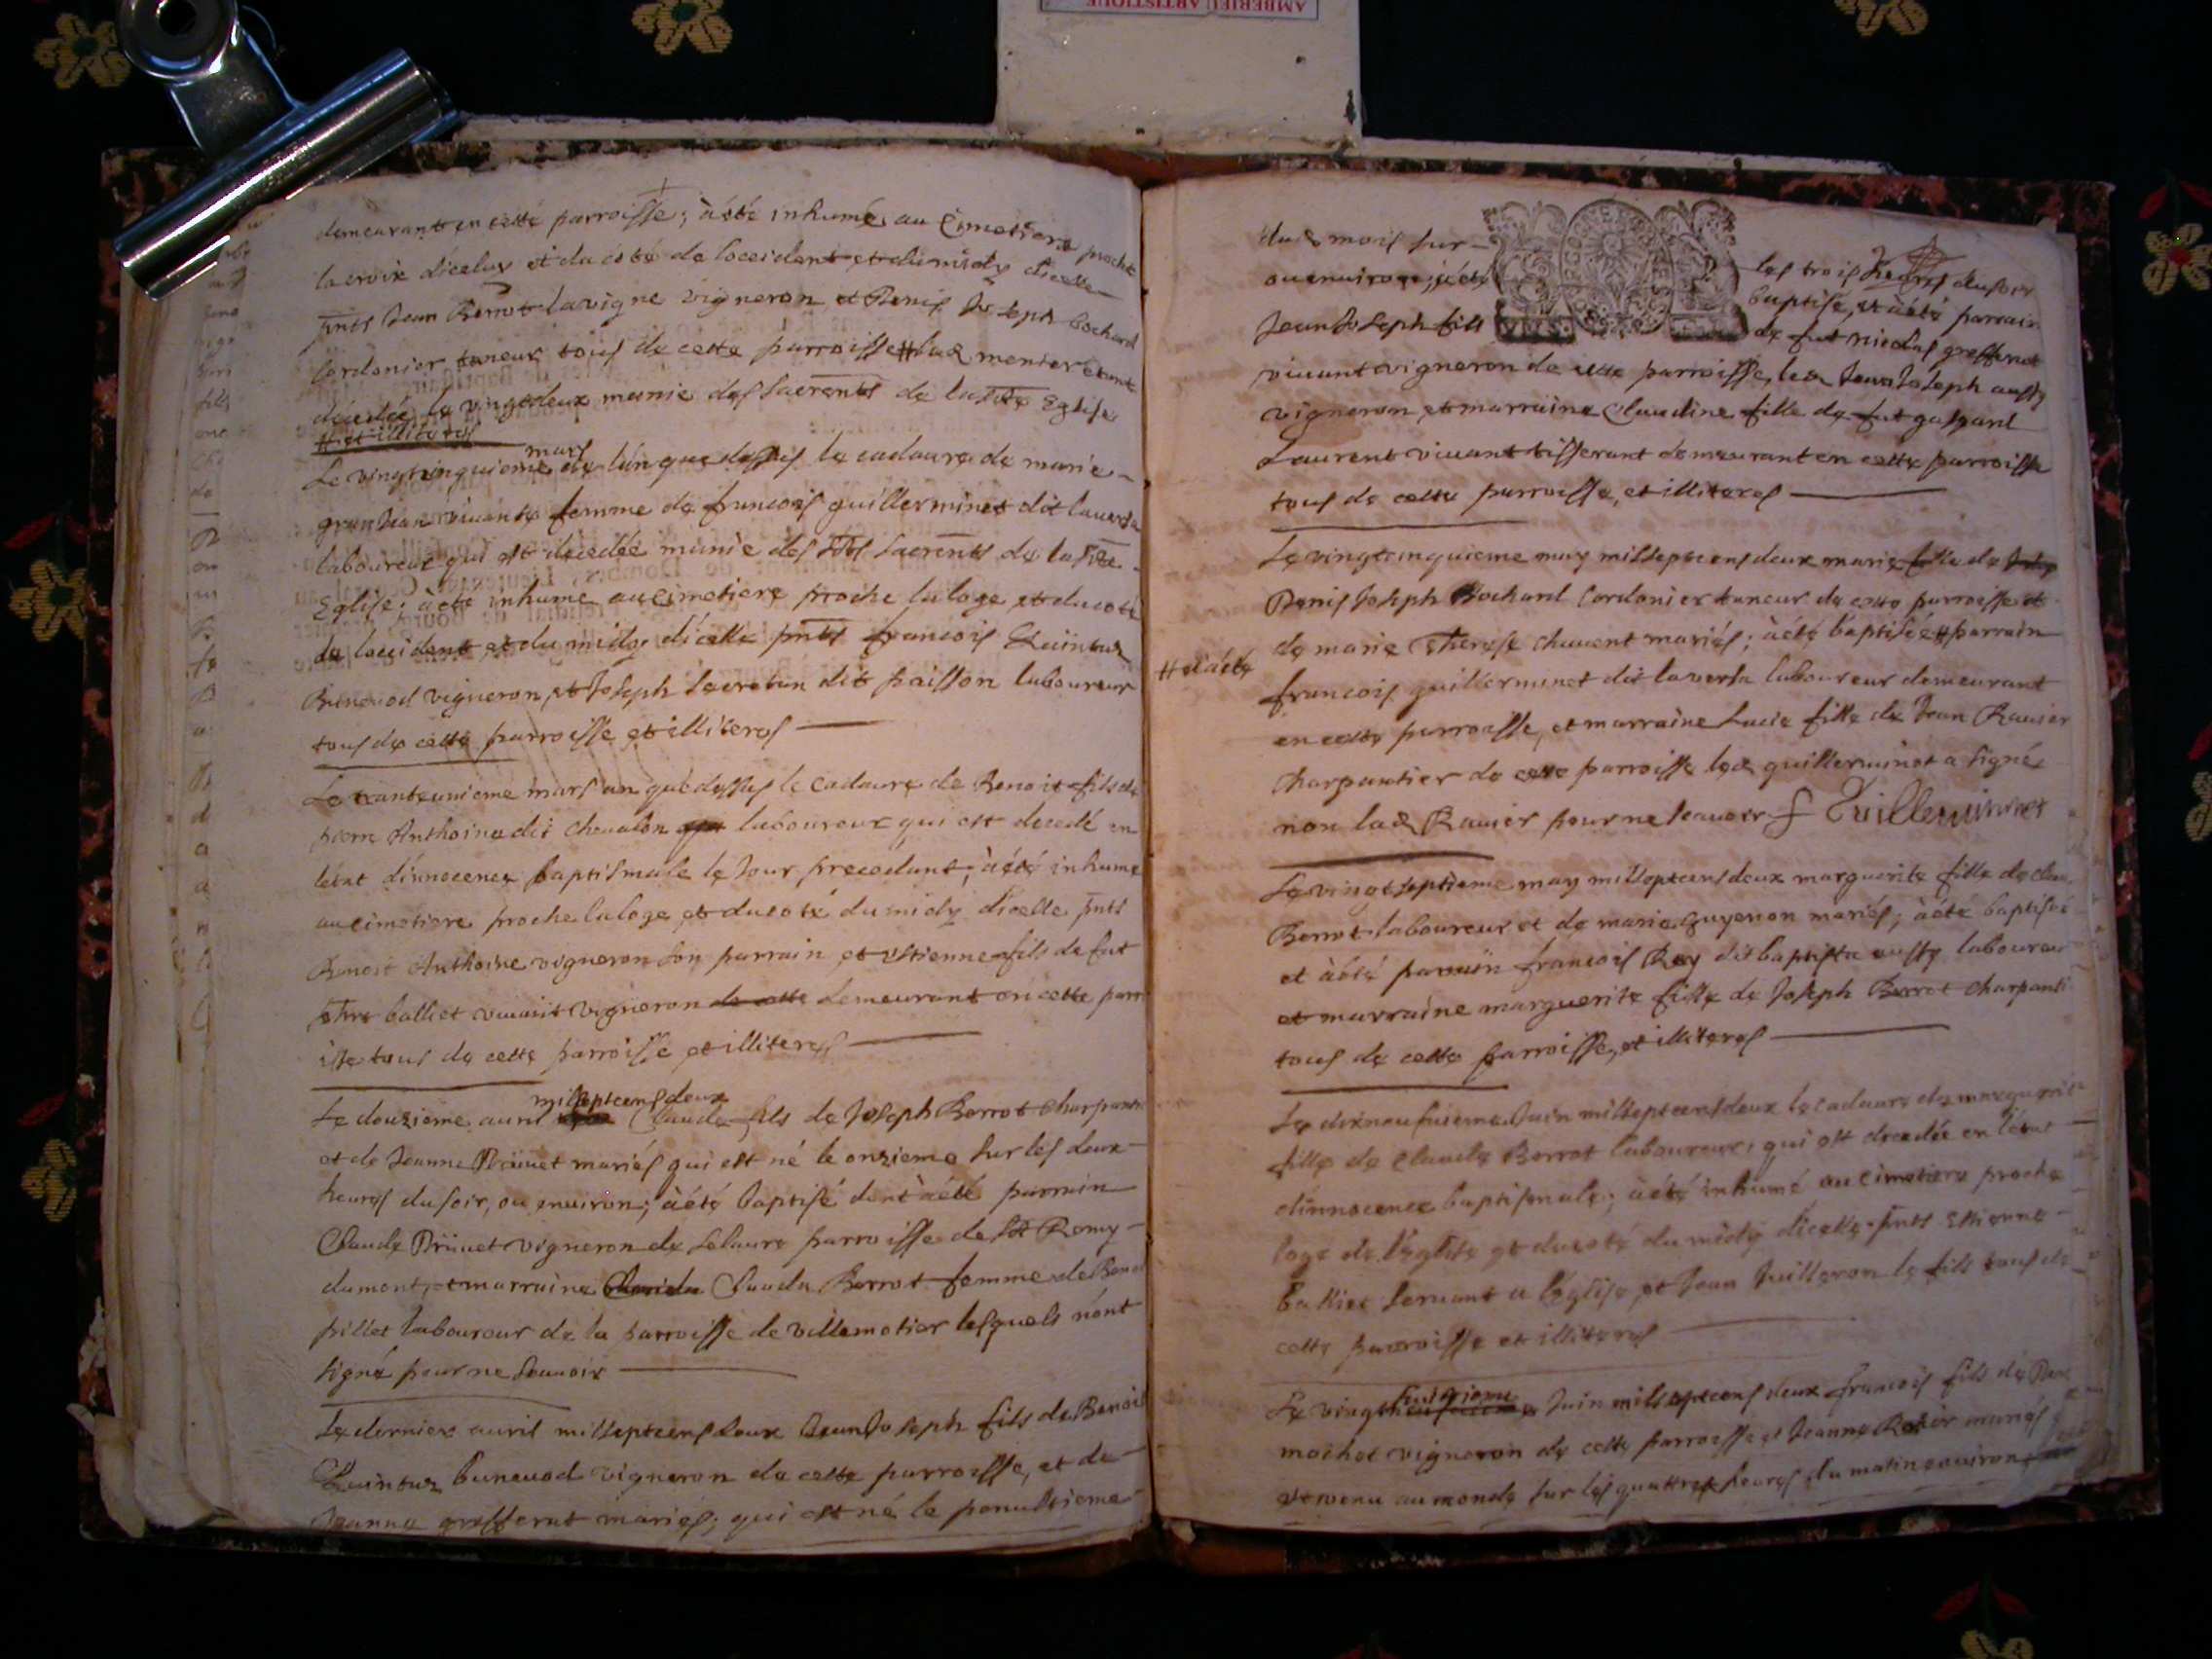 AMBERIEU ARTISTIQUE
demeurant en cette parroisse; à été inhumé au Cimetiere proche
la croix dicelux et du côté de loccident et du midy dicelle
pnts Jean Borrot lavigne vigneron et Denis Joseph bochard
Cordonier taneur tous de cette parroisse # lad menier étant
décédée le vingtdeux munie des sacrents de la ste Eglise
# et illiteres
mars
Le vingtcinquieme de lan que dessus le cadaure de marie
grandjan vivante femme de francois guillerminet dit laversa
laboureur qui est decedée munie des sts sacrents de la ste
Eglise; à été inhumé au cimetiere proche la loge et du coté
de loccident et du midy dicelle pnts francois Quintus
Buneuod vigneron, et Joseph secretan dit paisson laboureur
tous de cette parroisse et illiteres
Le tranteunieme mars an que dessus le Cadaure de Benoit fils de
pierre Anthoine dit cheualon laboureur qui est decedé en
létat dinnocence baptismale le Jour precedant; à été inhumé
au cimetiere proche la loge et du coté du midy dicelle pnts
Benoit Anthoine vigneron son parrain et Estienne fils de fut
balliet vivant vigneron de cette demeurant en cette parr
isse tous de cette parroisse et illiteres
millseptcensdeux
Le douzieme auril Claude fils de Joseph Borrot charpanti
et de Jeanne Brüuet mariés qui est né le onzieme sur les deux
heures du soir, ou enuiron; à été baptisé dont à été parrain
Claude Brüuet vigneron de Selaure parroisse de St Remy
dumont, et marraine Claude Clauda Borrot femme de Benoi
pillet laboureur de la parroisse de villemotier lesquels n'ont
signé pour ne scauoir
Le dernier auril millseptcensdeux Jean Joseph fils de Benoit
Quintus buneuod vigneron de cette parroisse, et de
Jeanne greffenat mariés; qui est né le penultieme
dud mois sur les trois heures du soir
ou enuiron; à été baptisé, et à été parrain
Jean Joseph fils de fut nicolas greffenat
viuant vigneron de cette parroisse, led Jean Joseph aussy
vigneron et marraine Claudine fille de fut gaspard
Laurent viuant tisserant demeurant en cette parroisse
tous de cette parroisse, et illiteres
Le vingtcinquieme may millseptcensdeux marie fille de
Denis Joseph Bochard Cordonier taneur de cette parroisse et
de marie Therese chauent mariés; à été baptisée # parrain
# et à été
francois guillerminet dit laversa laboureur demeurant
en cette parroisse, et marraine Lucie fille de Jean Rauier
Charpantier de cette parroisse led guillerminet a signé
non lad Rauier pour ne scauoir f Guillerminet
Le vingtseptieme may millseptcensdeux marguerite fille de clau
Borrot laboureur et de marie guyenon mariés; à été baptisée
et à été parrain francois Rey dit baptista aussy laboureur
et marraine marguerite fille de Joseph Borrot charpanti
tous de cette parroisse, et illiteres
Le dixneufuieme Juin millseptcensdeux le cadaure de marguerite
fille de Claude Borrot laboureur, qui est decedée en létat
dinnocence baptismale; à été inhumé au cimetiere proche
loge de l'Eglise et du coté du midy dicelle pnts Estienne
balliet seruant a l'église, et Jean Juilleron le fils tous de
cette parroisse et illiteres
huitieme
Le vingt Juin millseptcensdeux francois fils de
mochet vigneron de cette parroisse et Jeanne Rauier mariés
et venu au monde sur les quattre heures du matin enuiron